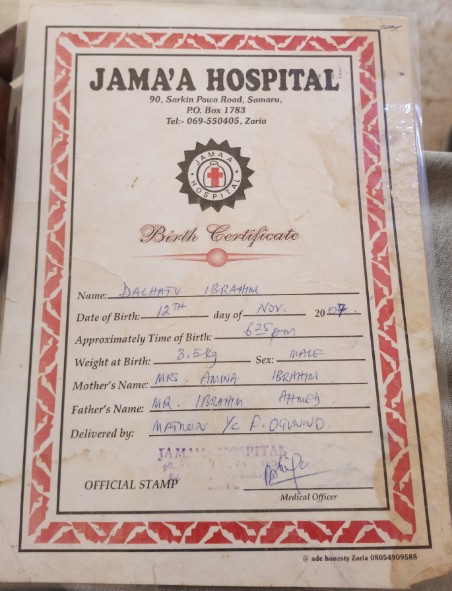 JAMA'A HOSPITAL
90, Sarkin Pawa Road, Samaru,
P.O. Box 1783
Tel:- 069-550405, Zaria
JAMA'A
HOSPITAL
Birth Certificate
Name: DALHATU IBRAHIM
Date of Birth: 12TH day of NOV. 2007.
Approximately Time of Birth: 625pm
Weight at Birth: 3.5kg Sex: MALE
Mother's Name: MRS. AMINA IBRAHIM
Father's Name: MR. IBRAHIM AHMED
Delivered by: MATRON Y/C F.
JAMA'A HOSPITAL
OFFICIAL STAMP
Medical Officer
@ ade honesty Zaria 08054909588